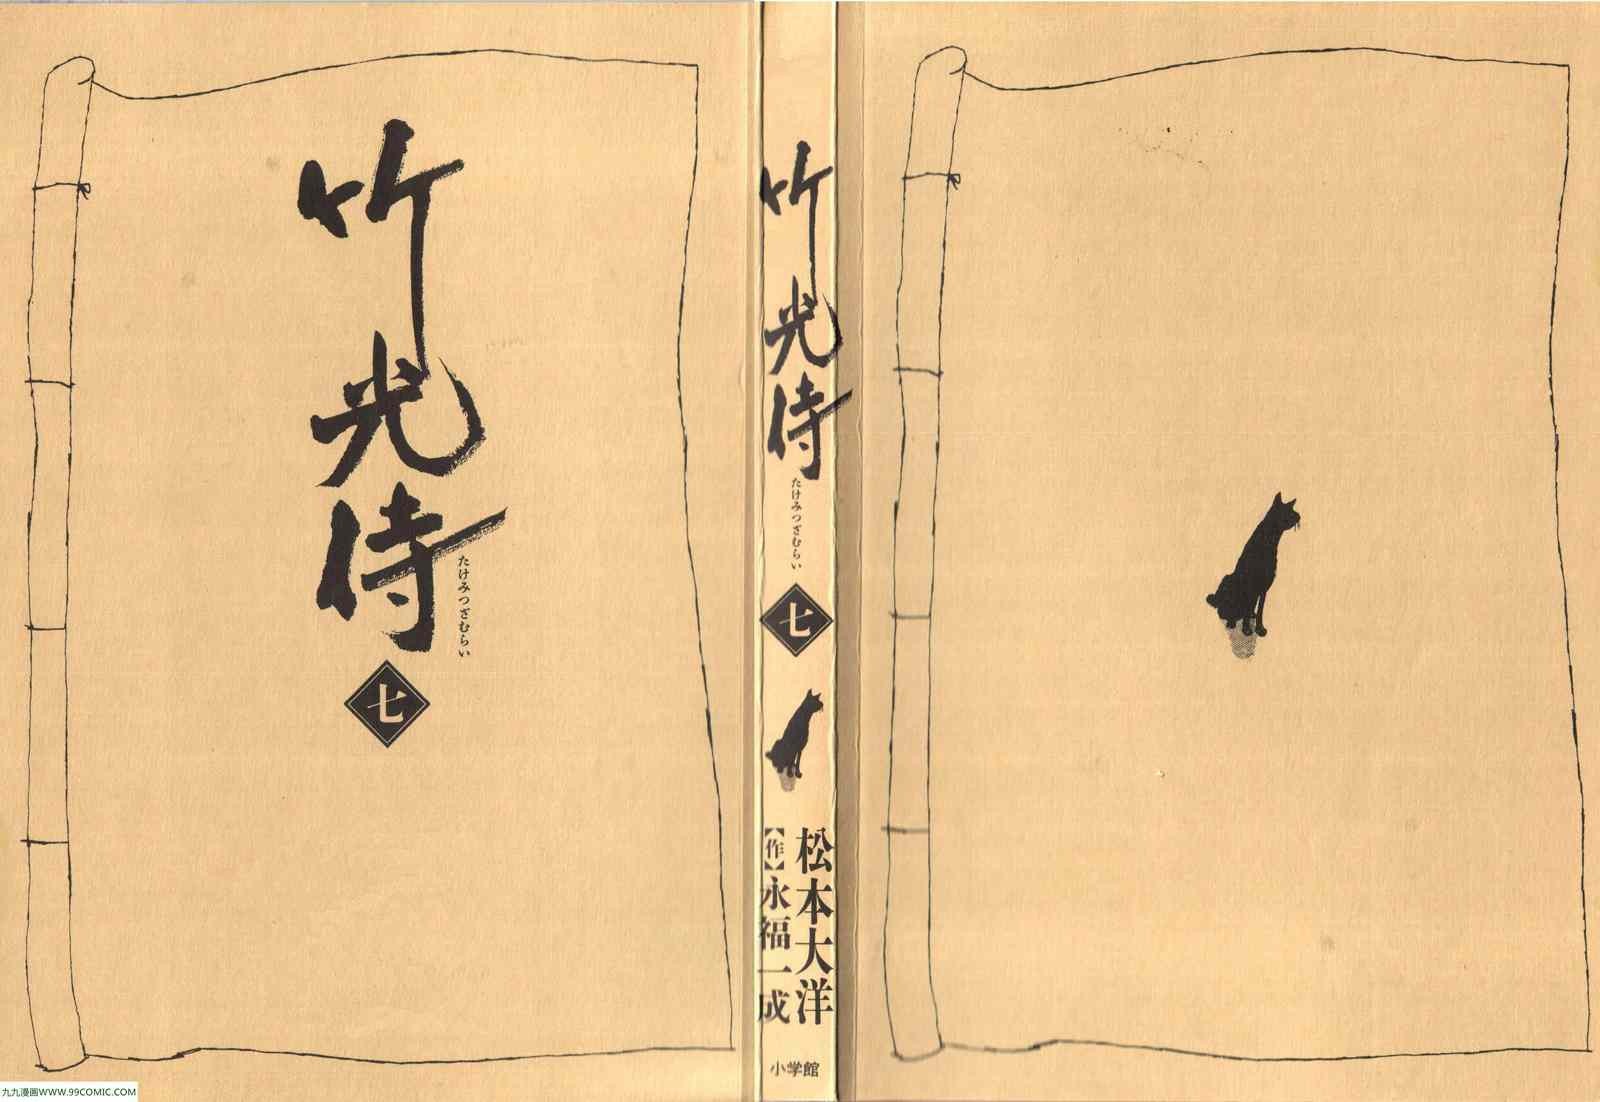 竹光侍
たけみつざむらい
七
竹光侍
たけみつざむらい
七
松本大洋
【作】永福一成
小学館
九九漫画WWW.99COMIC.COM